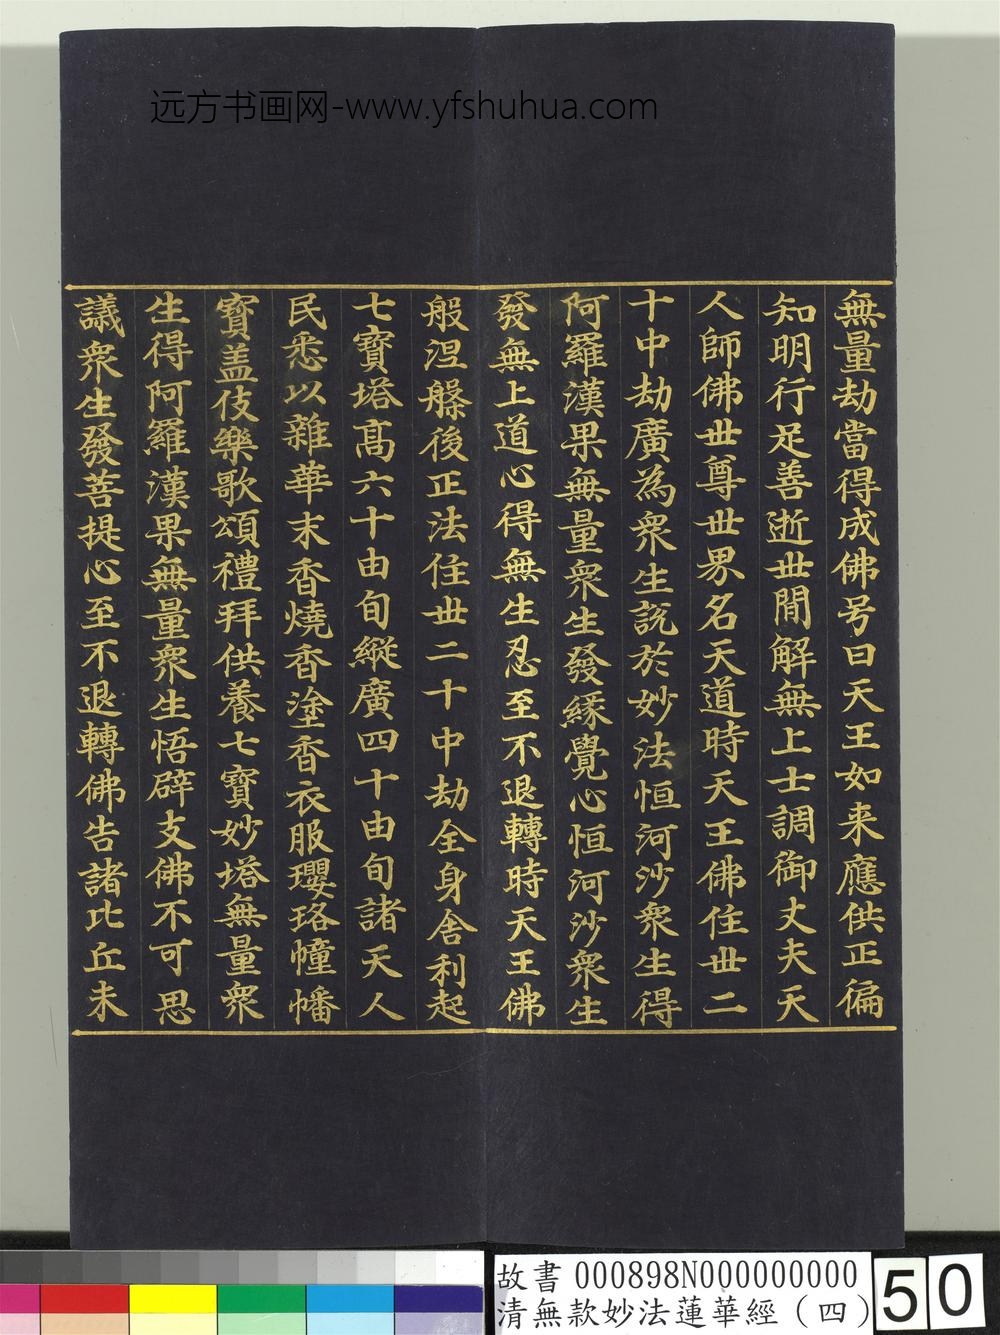 远方书画网-www.yfshuhua.com
無量劫當得成佛号曰天王如来應供正徧
知明行足善逝丗間解無上士調御丈夫天
人師佛丗尊丗界名天道時天王佛住丗二
十中劫廣為衆生說於妙法恒河沙衆生得
阿羅漢果無量衆生發緣覺心恒河沙衆生
發無上道心得無生忍至不退轉時天王佛
般涅槃後正法住丗二十中劫全身舍利起
七寶塔髙六十由旬縱廣四十由旬諸天人
民悉以雜華末香燒香塗香衣服瓔珞幢幡
寶盖伎樂歌頌禮拜供養七寶妙塔無量衆
生得阿羅漢果無量衆生悟辟支佛不可思
議衆生發菩提心至不退轉佛告諸比丘未
故書 000898N000000000
清無款妙法蓮華經（四）
50